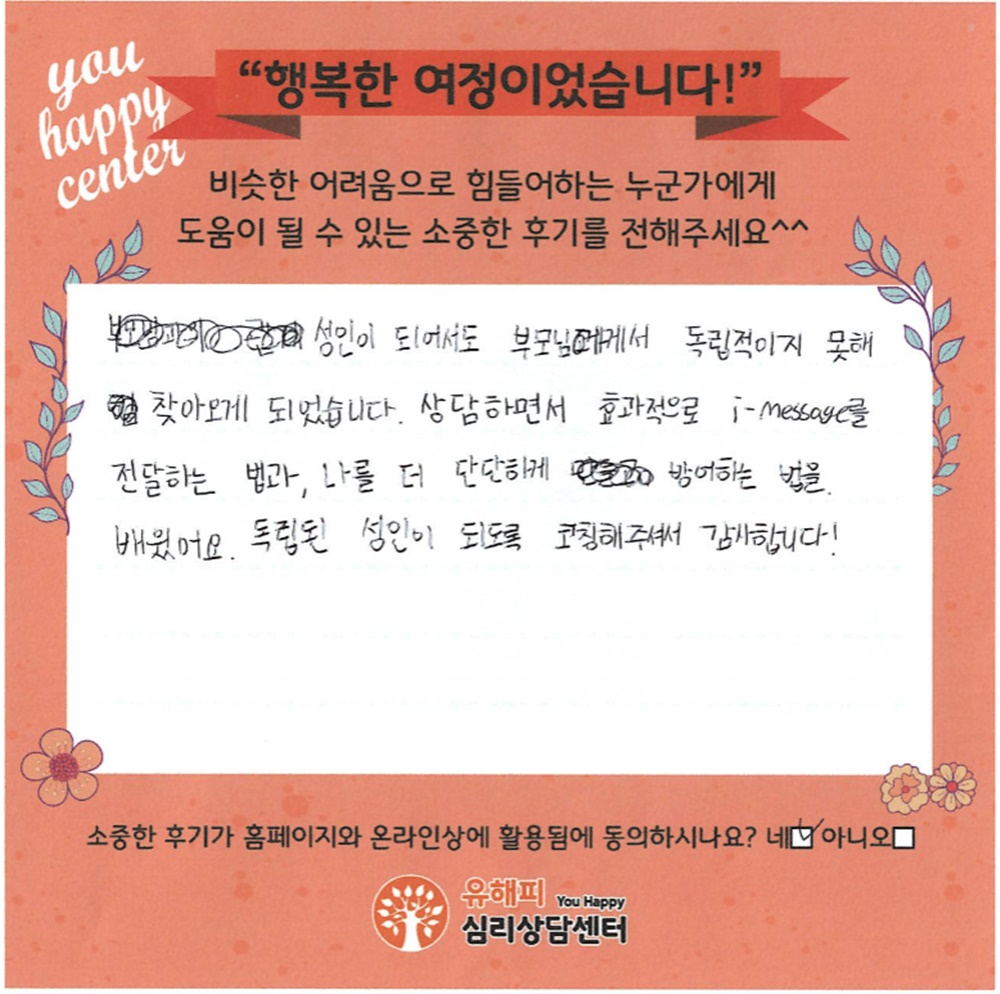 you
happy
center
“행복한 여정이었습니다!”
비슷한 어려움으로 힘들어하는 누군가에게
도움이 될 수 있는 소중한 후기를 전해주세요^^
성인이 되어서도 부모님에게서 독립적이지 못해
찾아오게 되었습니다. 상담하면서 효과적으로 i-message를
전달하는 법과, 나를 더 단단하게 방어하는 법을
배웠어요. 독립된 성인이 되도록 코칭해주셔서 감사합니다!
소중한 후기가 홈페이지와 온라인상에 활용됨에 동의하시나요? 네 아니오
유해피 You Happy
심리상담센터